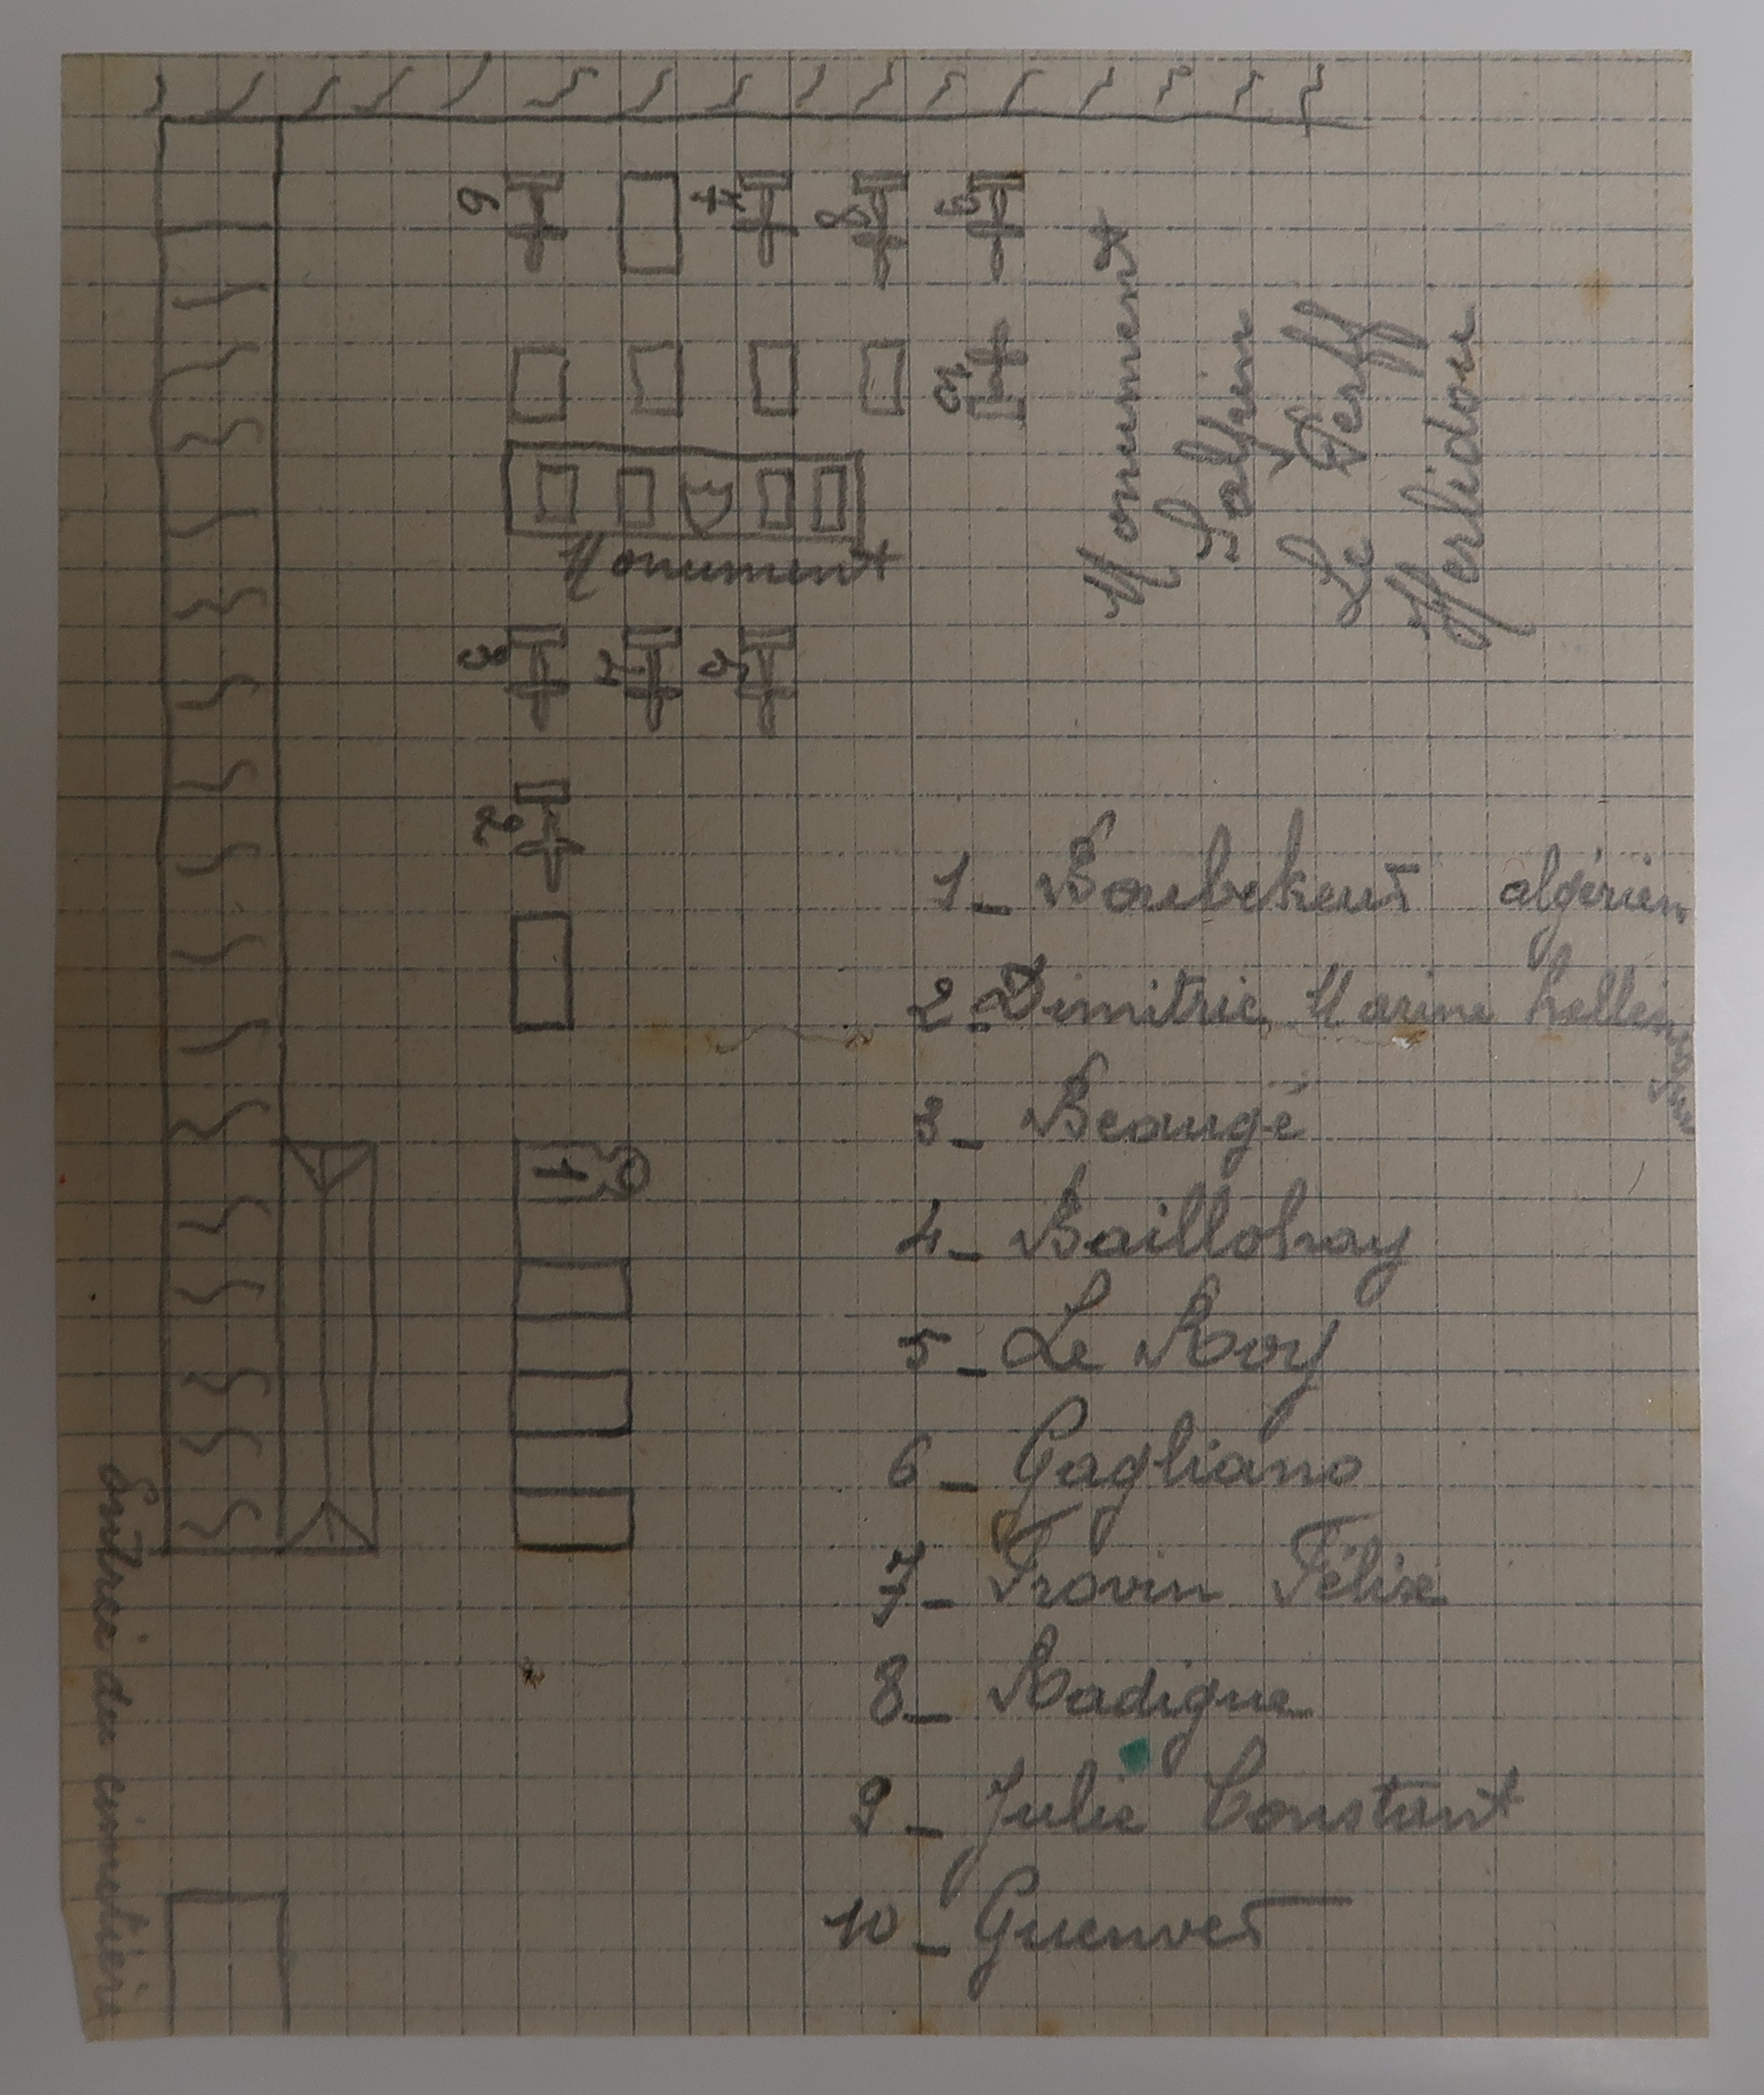 Monument
Monument
Salpin
Le Serff
Merlidou
1_ Boubekeur algérien
2_ Dimitrie Marine hellénique
3_ Beaugé
4_ Baillobay
5_ Le Roy
6_ Gagliano
7_ Trovin Félix
8_ Radigue
9_ Julie Constant
10_ Guenver
Entrée du cimetière